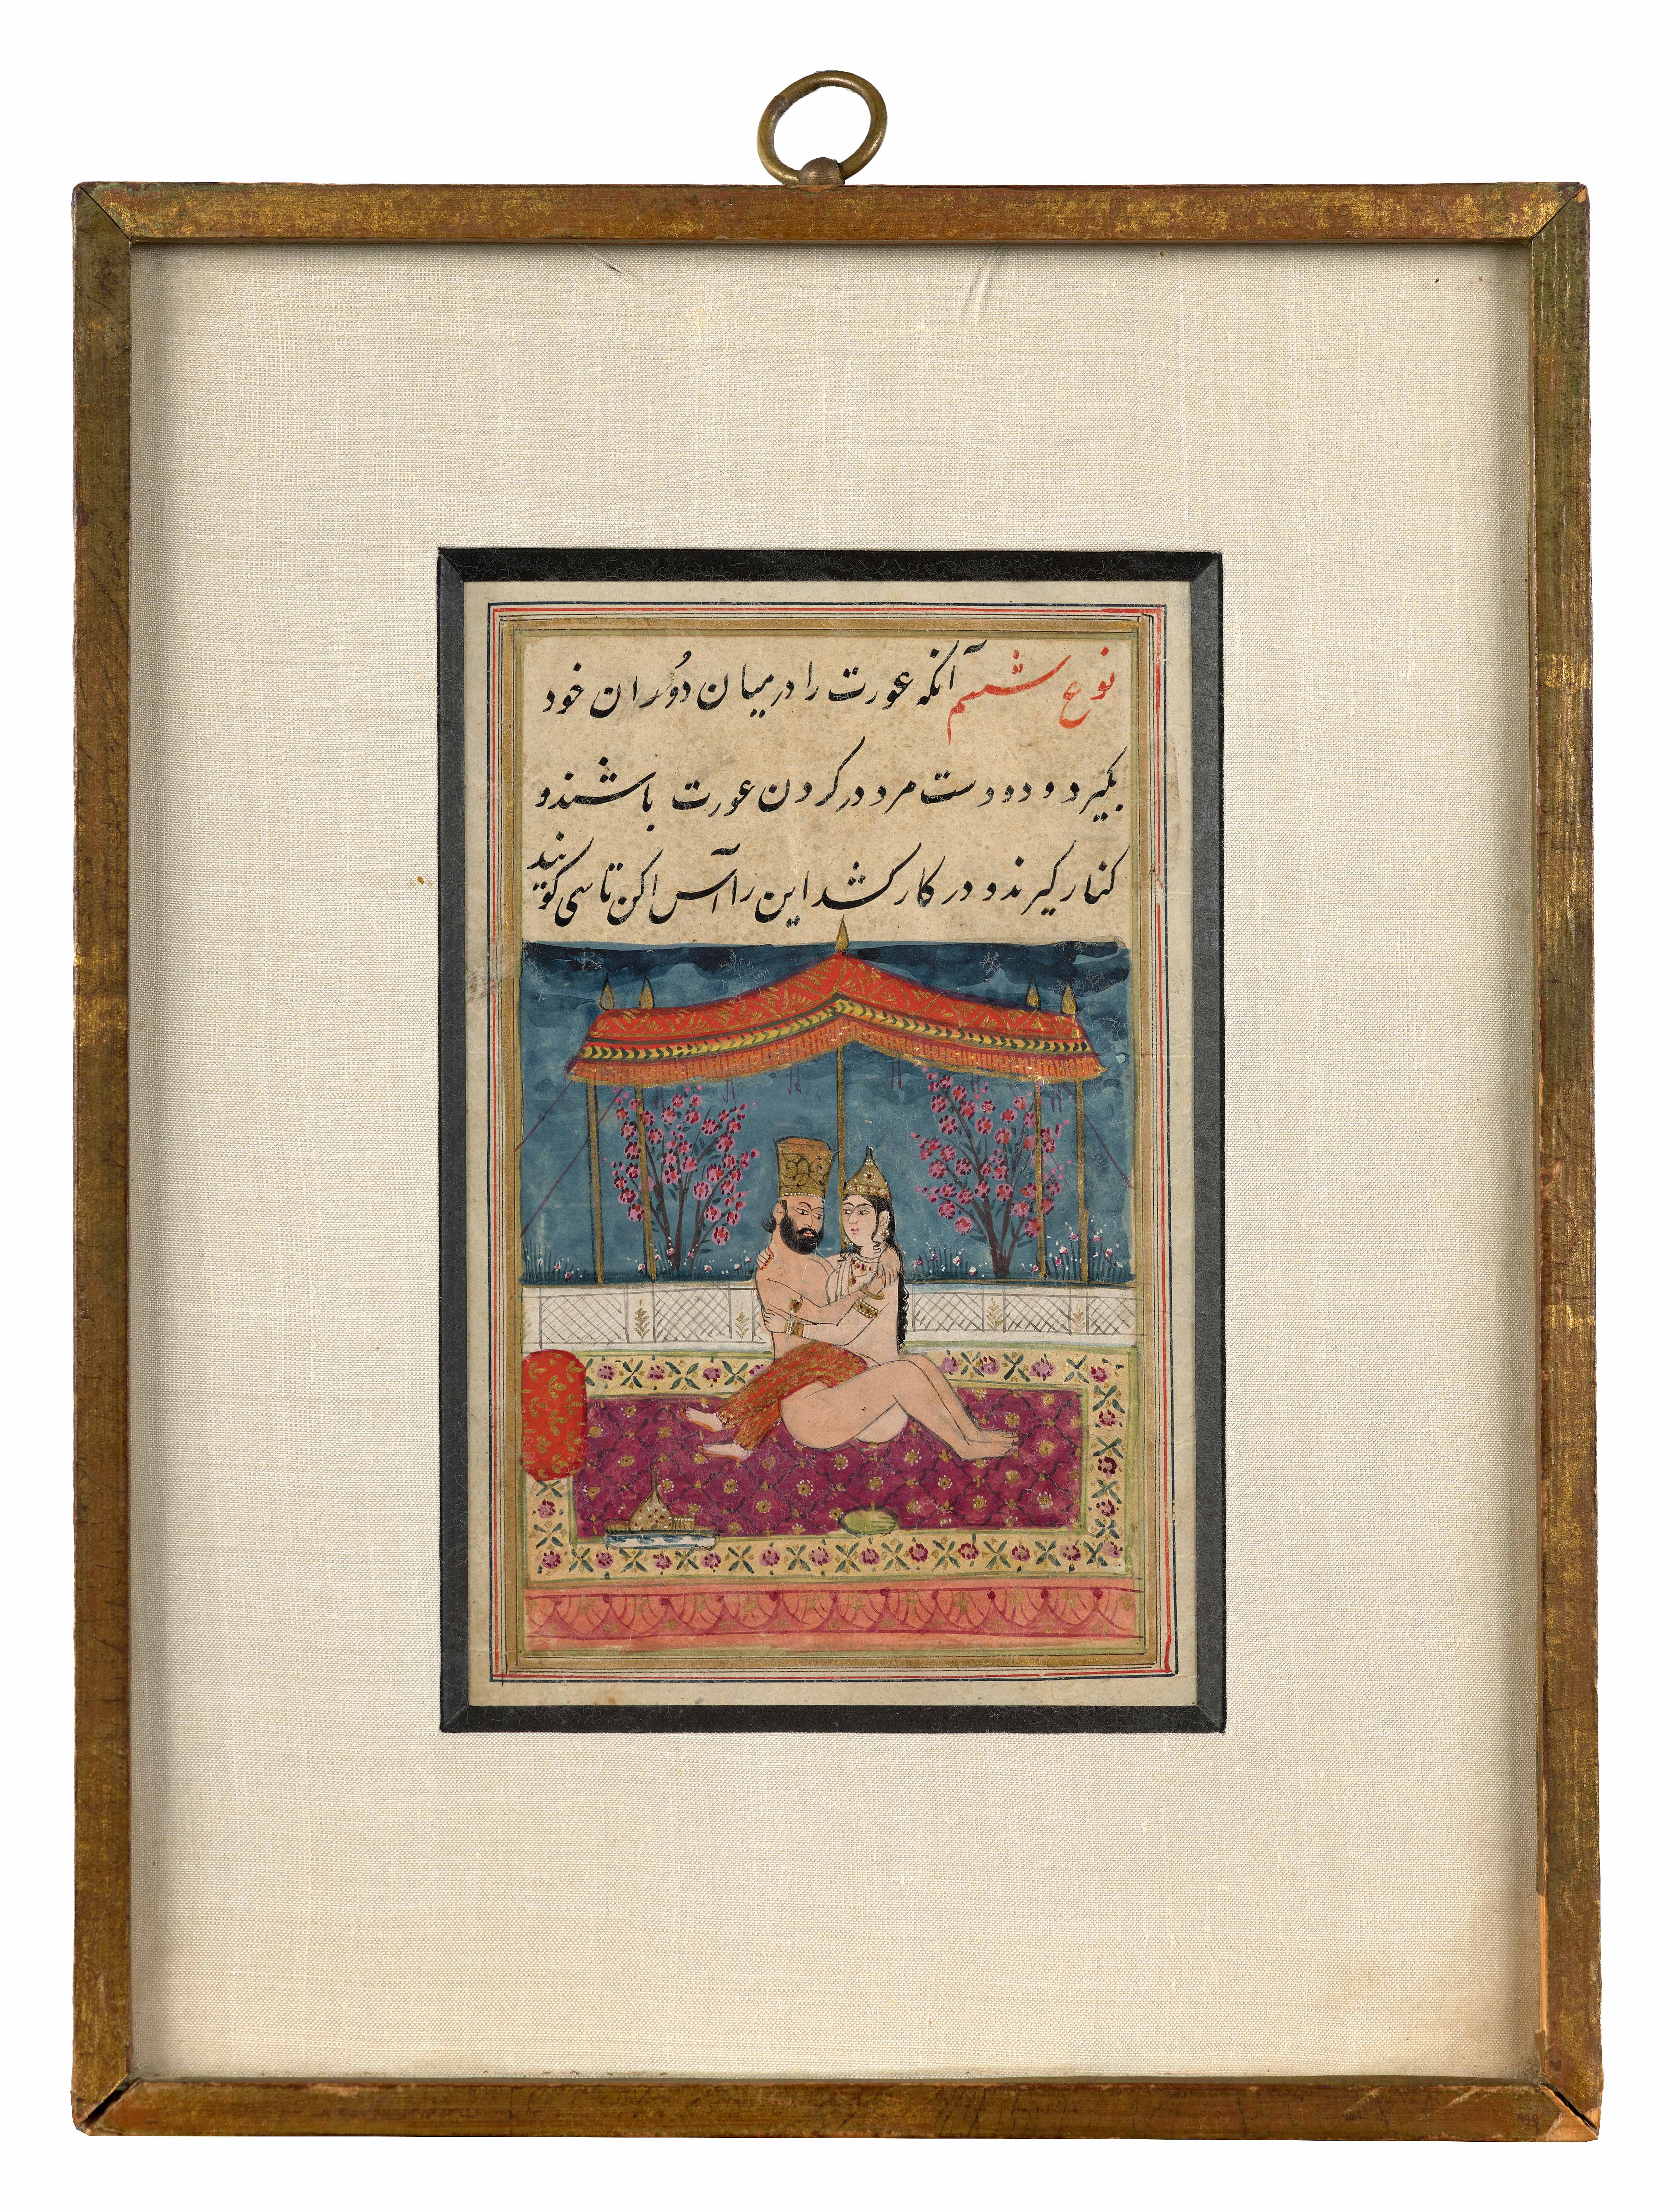 نوع ششم آنکه عورت را درمیان دوران خود
بکیرد و دو دست مرد در کردن عورت باشند و
کنار کیرند و در کار کشد این را آسن اکن تاسی کویند